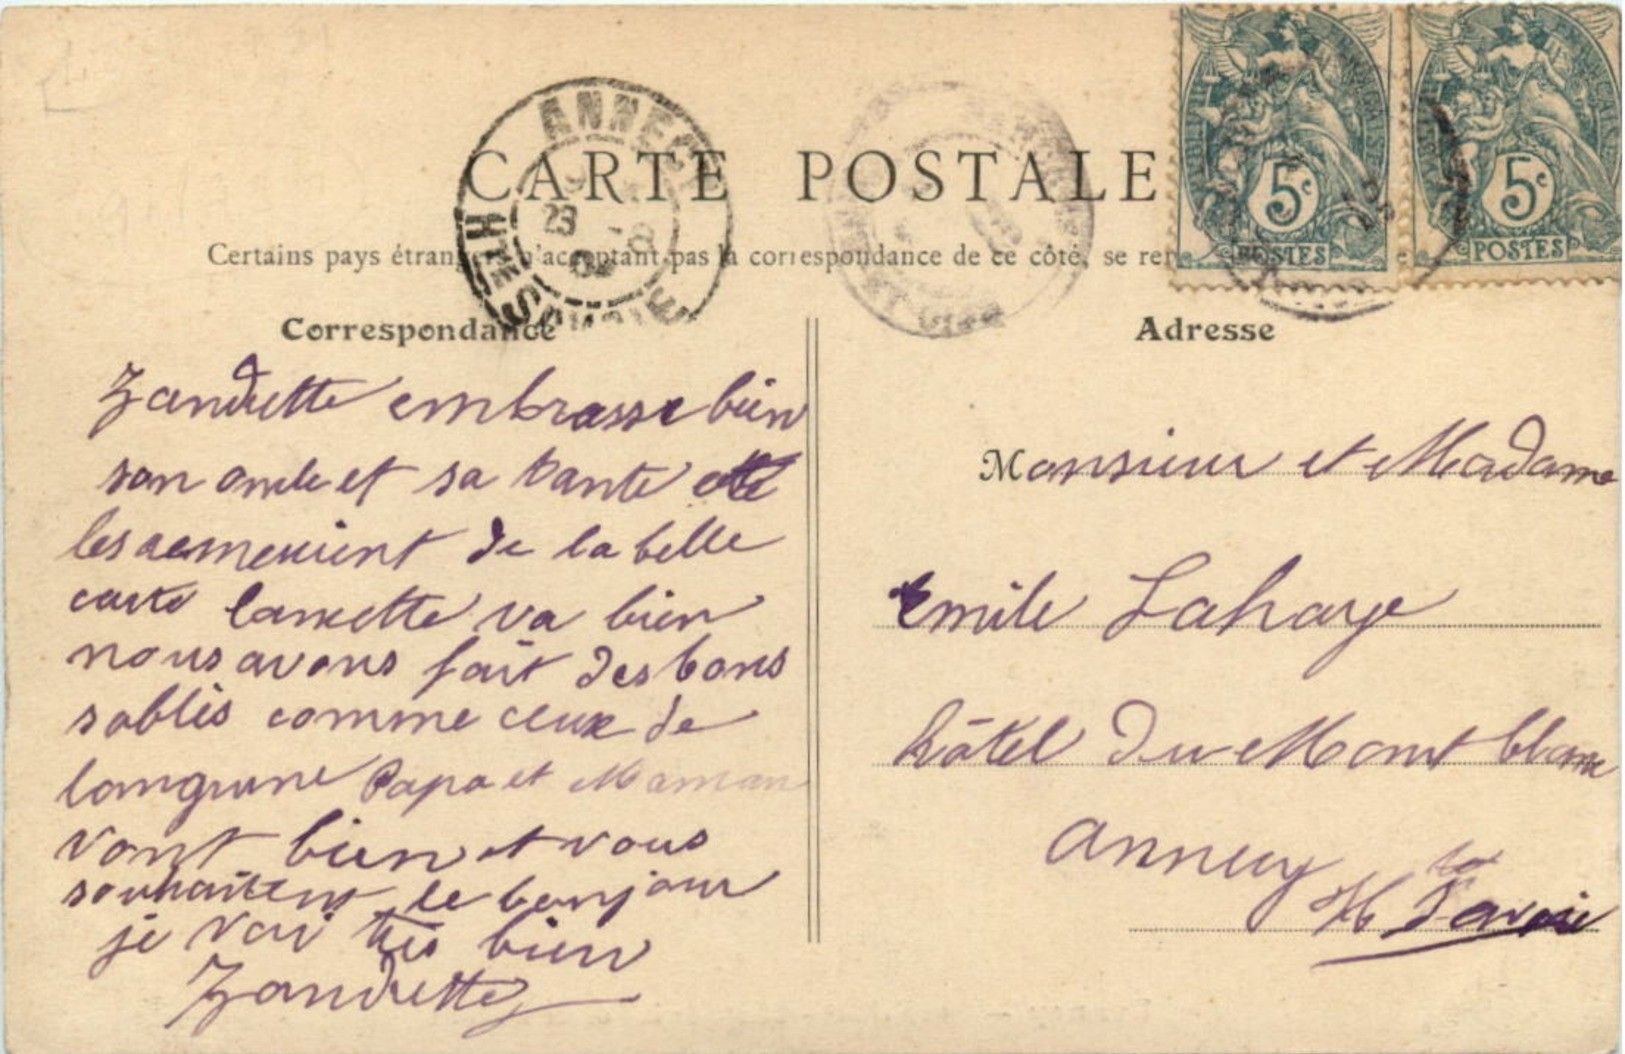 CARTE POSTALE
Certains pays étrangers n'acceptant pas la correspondance de ce côté, se
Correspondance
Zandrette embrasse bien
son oncle et sa tante
les remerient de la belle
carte va bien
nous avons fait des bons
sablés comme ceux de
langrune Papa et Maman
vont bien et vous
souhaitent le bonjour
je vai très bien
Zandrette
Adresse
Monsieur et Madame
Emile Lahaye
hôtel du Mont blanc
annecy
Hte Savoie
ANNECY
HTE SAVOIE
23
5c
POSTES
5c
POSTES